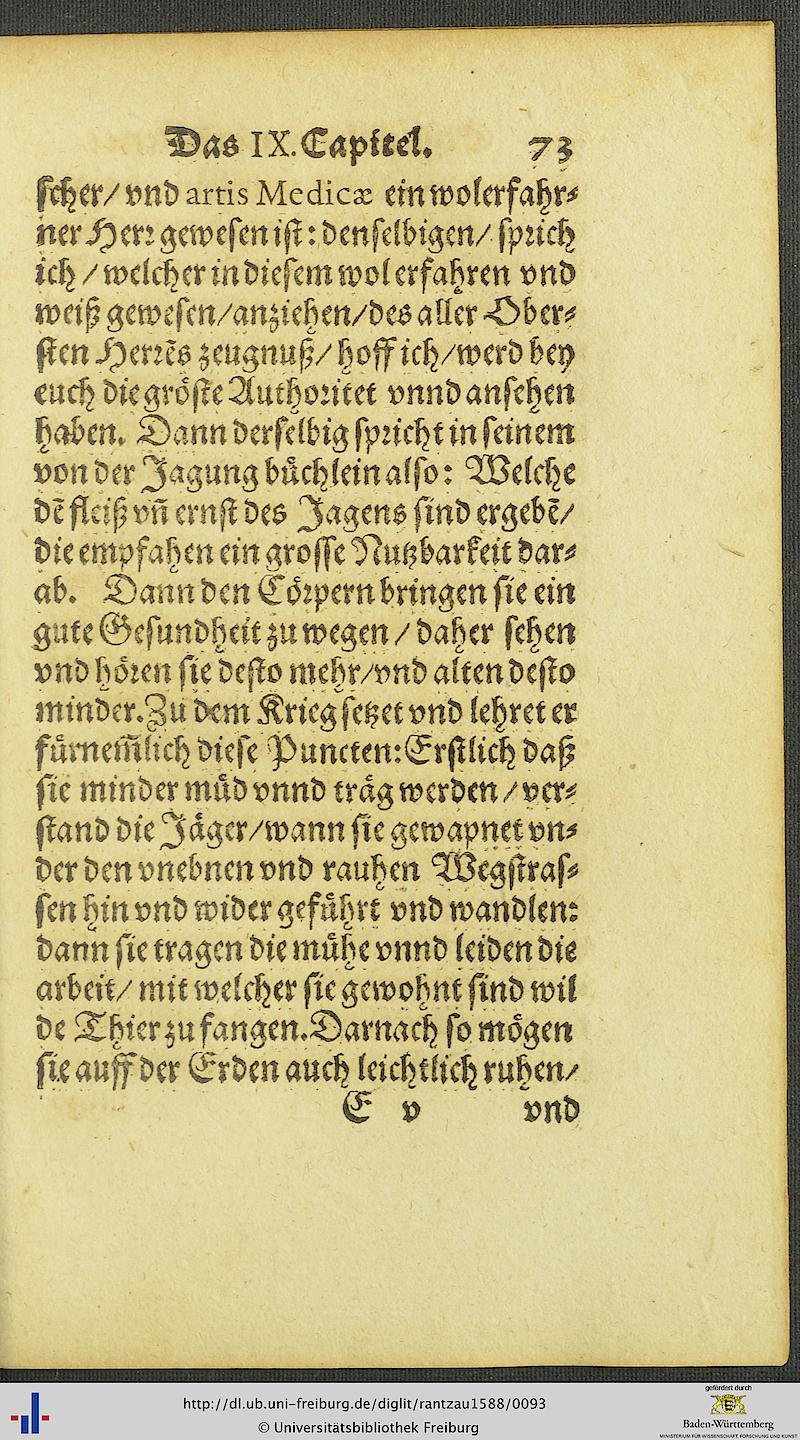 Das IX. Capitel. 73
ſcher/ vnd artis Medicæ ein wolerfahr⸗
ner Herꝛ geweſen iſt: denſelbigen/ ſpꝛich
ich / welcher in dieſem wol erfahren vnd
weiß geweſen/anziehen/des aller Ober⸗
ſten Herꝛēs zeugnuß/ hoff ich/werd bey
euch die gröſte Authoꝛitet vnnd anſehen
haben. Dann derſelbig ſpꝛicht in ſeinem
von der Jagung büchlein alſo: Welche
dē fleiß vñ ernſt des Jagens ſind ergebē/
die empfahen ein groſſe Nutzbarkeit dar⸗
ab. Dann den Cöꝛpern bringen ſie ein
gute Geſundheit zu wegen / daher ſehen
vnd höꝛen ſie deſto mehr/vnd alten deſto
minder. Zu dem Krieg ſetzet vnd lehret er
fürnem̃lich dieſe Puncten: Erſtlich daß
ſie minder müd vnnd träg werden / ver⸗
ſtand die Jäger/wann ſie gewapnet vn⸗
der den vnebnen vnd rauhen Wegſtraſ⸗
ſen hin vnd wider geführt vnd wandlen:
dann ſie tragen die mühe vnnd leiden die
arbeit/ mit welcher ſie gewohnt ſind wil
de Thier zu fangen. Darnach ſo mögen
ſie auff der Erden auch leichtlich ruhen/
E v vnd
http://dl.ub.uni-freiburg.de/diglit/rantzau1588/0093
© Universitätsbibliothek Freiburg
gefördert durch
Baden-Württemberg
MINISTERIUM FÜR WISSENSCHAFT, FORSCHUNG UND KUNST